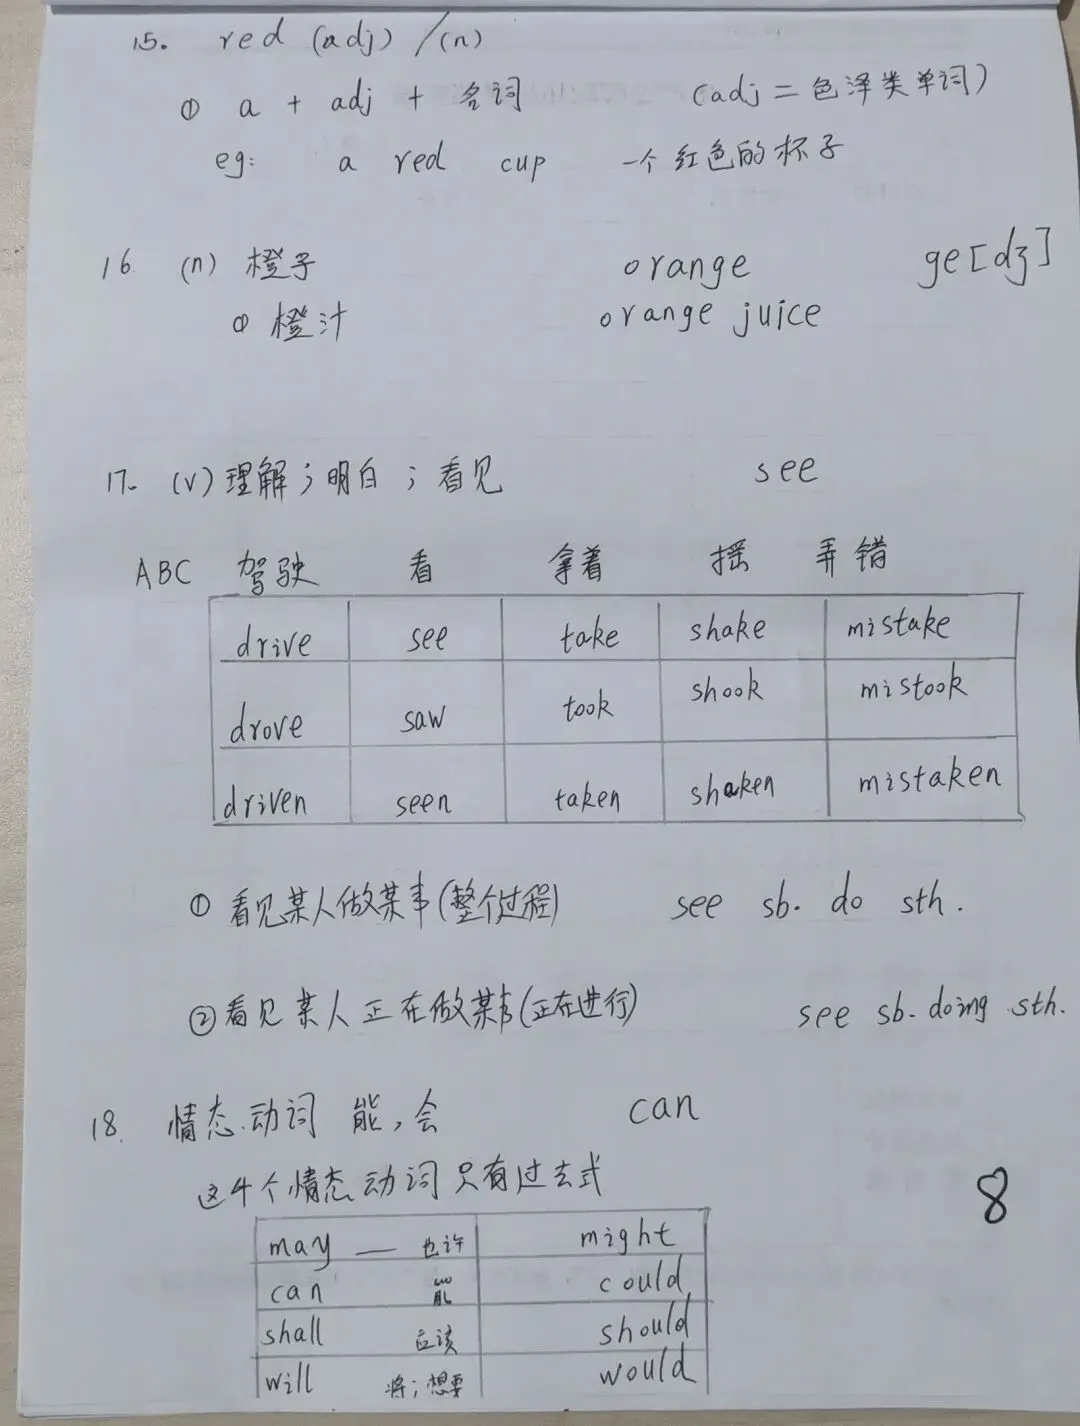 15. red (adj) /(n)
① a + adj + 名词 (adj = 色泽类单词)
eg: a red cup 一个红色的杯子
16. (n) 橙子 orange ge[dʒ]
① 橙汁 orange juice
17. (v) 理解;明白;看见 see
ABC 驾驶 看 拿着 摇 弄错
drive see take shake mistake
drove saw took shook mistook
driven seen taken shaken mistaken
① 看见某人做某事(整个过程) see sb. do sth.
② 看见某人正在做某事(正在进行) see sb. doing sth.
18. 情态动词 能,会 can
这4个情态动词只有过去式
may — 也许 might
can 能 could
shall 应该 should
will 将;想要 would
8